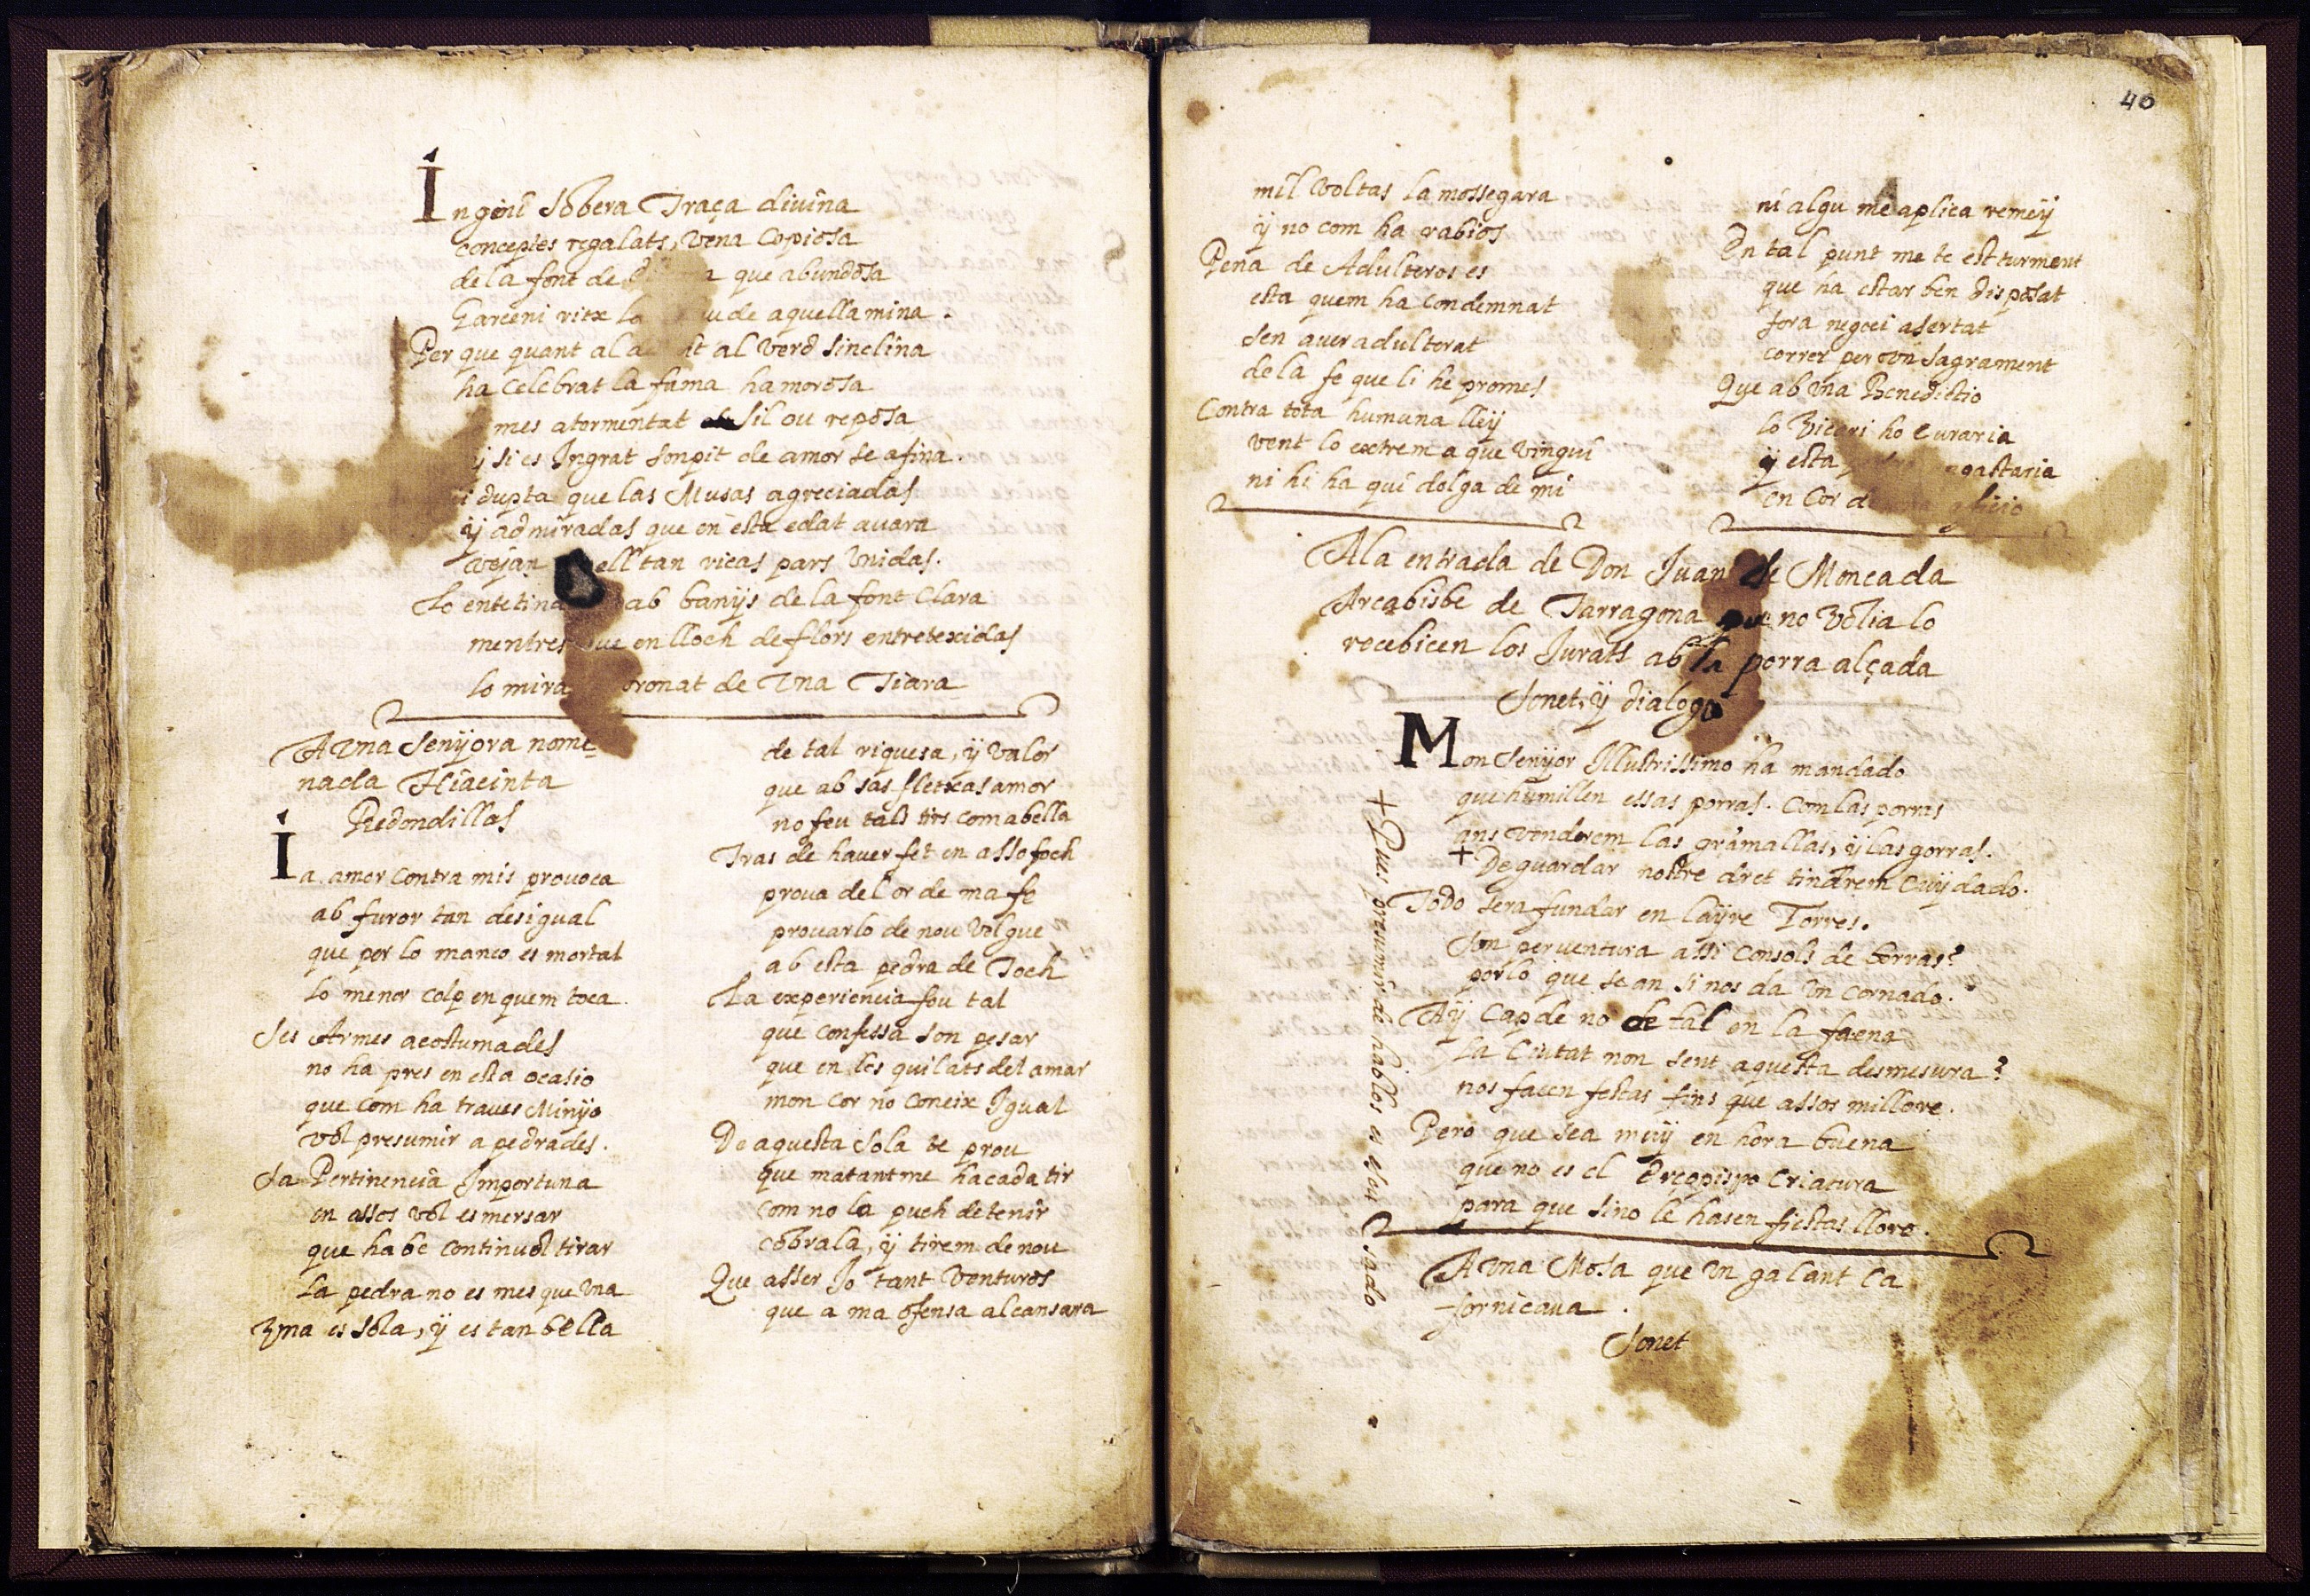 Ingeni Sobera Traça divina
conceptes regalats, vena copiosa
de la font de que abundosa
Garceni ritx la de aquella mina.
Per que quant al al verd sinclina
ha celebrat la fama hamorosa
mes atormentat sil ou reposa
y si es Ingrat sonpit de amor se afina.
dupta que las Musas agreciadas
ÿ admiradas que en esta edat avara
vejan ell tan ricas pars Vnidas.
Lo ab banÿs de la font Clara
mentres que en lloch de flors entretexidas
lo mira coronat de Vna Tiara
A Vna Senÿora nome
nada Hiacinta
Redondillas
Ia amor contra mis provoca
ab furor tan desigual
que per lo manco es mortal
lo menor colp en quem toca.
Ses Armes acostumades
no ha pres en esta ocasio
que com ha traves Minÿo
vol presumir a pedrades.
La Pertinencia Importuna
en assos vol esmersar
que ha be continuol tirar
la pedra no es mes que Vna
Vna es sola, ÿ es tan bella
de tal riquesa, ÿ valor
que ab sas fletxas amor
no feu tals tirs com abella
Tras de haver fet en asso foch
prova del or de ma fe
provarlo de nou vol que
ab esta pedra de Toch
La experiencia fou tal
que confessa son pesar
que en los quilats del amar
mon cor no coneix Igual
De aquesta sola te prou
que matantme ha cada tir
com no la puch detenir
cobrala, ÿ tirem de nou
Que asser Jo tant venturos
que a ma ofensa alcansara
40
mil voltas la mossegara
ÿ no com ha rabios
Pena de Adulteros es
esta quem ha condemnat
sen aver adulterat
de la fe que li he promes
Contra tota humana lleÿ
vent lo extrem a que vingui
ni hi ha qui dolga de mi
ni algu me aplica remeÿ
En tal punt me te est turment
que ha estar ben disposat
fora negoci asertat
correr per vn sagrament
Que ab vna Benedictio
lo Vicari ho curaria
ÿ esta gastaria
en cor de
A la entrada de Don Juan de Moncada
Arcabisbe de Tarragona que no volia lo
recebicen los Jurats ab la porra alçada
Sonet, ÿ dialogo
Mon Senÿor Illustrissimo ha mandado
que humillen essas porras. Com las porras
ans vendrem las gramallas, ÿ las gorras.
+ De guardar nostre dret tindrem cuÿdado.
+ Pus presumir de hablos es
Todo sera fundar en laÿre Torres.
Son per ventura assi Consols de borras?
por lo que sean si nos da vn cornado.
Aÿ Cap de no de tal en la faena
la Ciutat non sent aquesta desmesura?
nos facen festas fins que assos millore.
Pero que sea muÿ en hora buena
que no es el Arçopispo criatura
para que sino le hasen fiestas llore.
A vna Mosa que vn galant la
fornicava.
Sonet